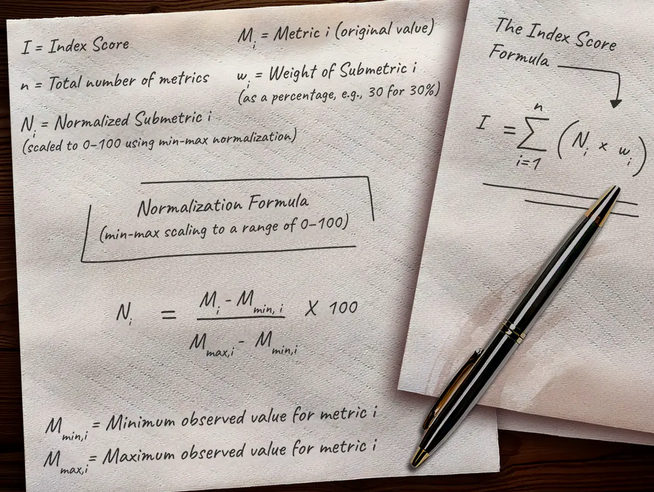 I = Index Score
n = Total number of metrics
N_i = Normalized Submetric i
(scaled to 0–100 using min-max normalization)
M_i = Metric i (original value)
w_i = Weight of Submetric i
(as a percentage, e.g., 30 for 30%)
Normalization Formula
(min-max scaling to a range of 0–100)
N_i = (M_i - M_min, i) / (M_max,i - M_min,i) X 100
M_min,i = Minimum observed value for metric i
M_max,i = Maximum observed value for metric i
The Index Score
Formula
I = ∑ n i=1 (N_i × w_i)